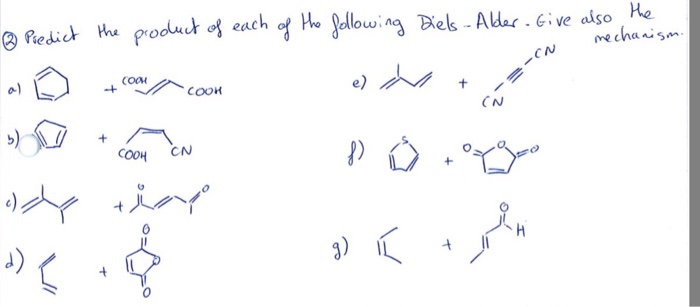 ② Predict the product of each of the following Diels-Alder. Give also the mechanism.
a) + COOH COOH
b) + COOH CN
c) + O O
d) + O O
e) + CN CN
f) S + O O O
g) + O H